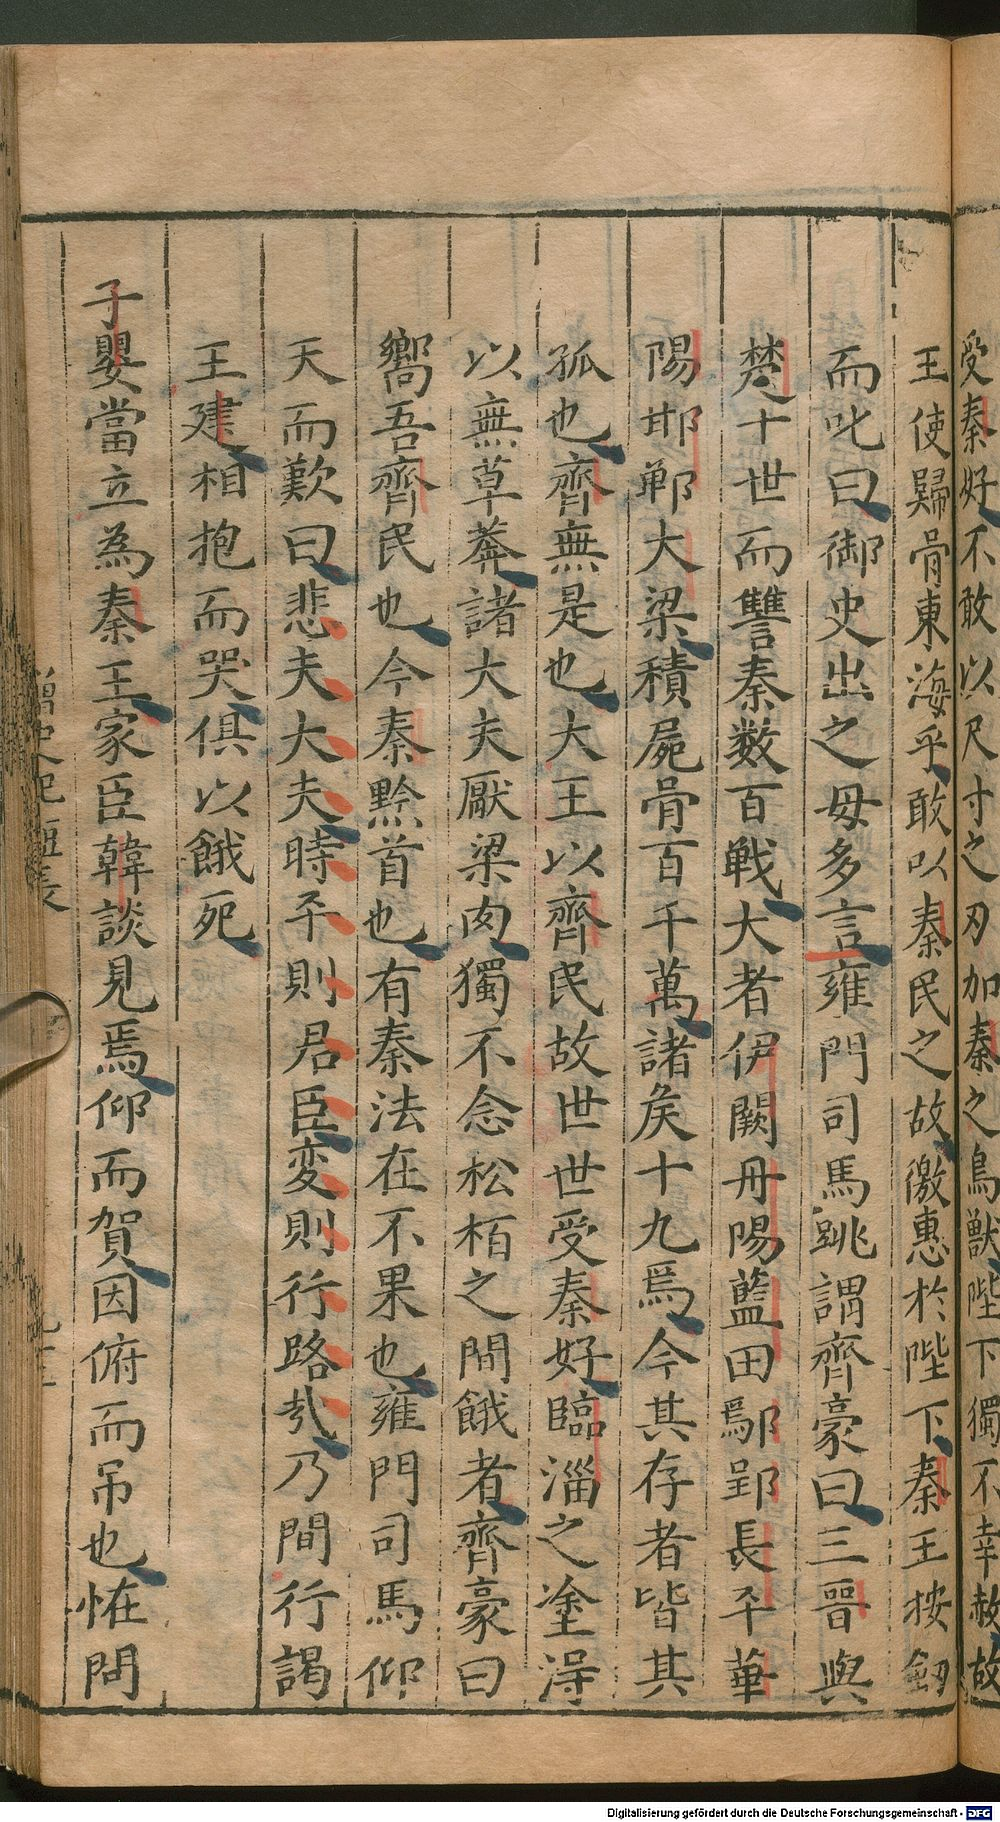 受秦好不敢以尺寸之刃加秦之鳥獸陛下獨不幸赦故
王使歸骨東海乎敢以秦民之故徼惠於陛下秦王按劒
而叱曰御史出之毋多言雍門司馬跳謂齊豪曰三晋與
楚十世而讐秦数百戦大者伊闕丹陽藍田鄢郢長平華
陽邯鄲大梁積屍骨百千萬諸矦十九焉今其存者皆其
孤也齊無是也大王以齊民故世世受秦好臨淄之塗淂
以無草莾諸大夫厭梁肉獨不念松栢之間餓者齊豪曰
嚮吾齊民也今秦黔首也有秦法在不果也雍門司馬仰
天而歎曰悲夫大夫時平則君臣変則行路㢤乃間行謁
王建相抱而哭俱以餓死
子嬰當立為秦王家臣韓談見焉仰而賀因俯而吊也恠問
史紀短長
Digitalisierung gefördert durch die Deutsche Forschungsgemeinschaft - DFG